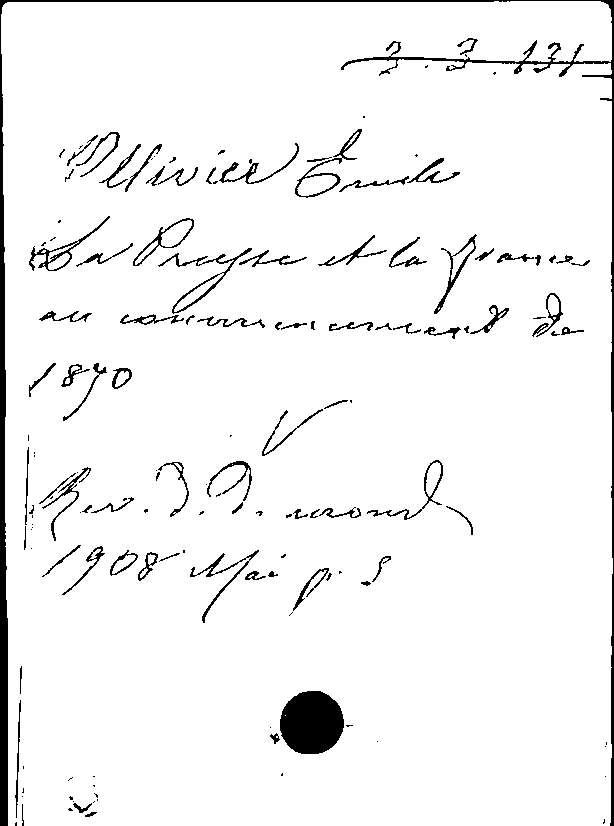 3.3.131
Ollivier Émile
La Prusse et la France
au commencement de
1870
Rev. d. d. mond
1908 Mai p. 5